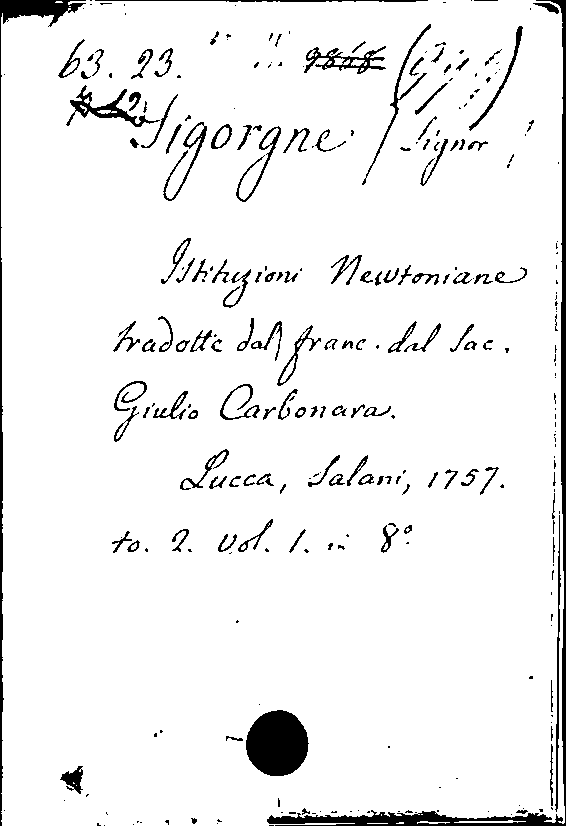 63. 23. 9868
Sigorgne / Signor
Istituzioni Newtoniane
tradotte dal franc. dal Sac.
Giulio Carbonara.
Lucca, Salani, 1757.
to. 2. vol. 1. in 8º